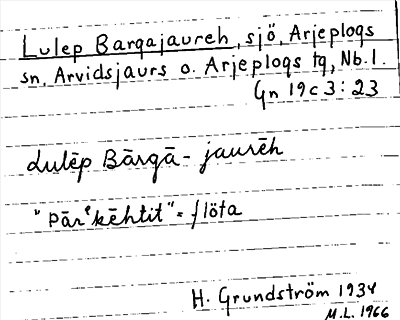 Lulep Bargajaureh, sjö, Arjeplogs
sn, Arvidsjaurs o. Arjeplogs tg, Nb. l.
Gn 19 c 3 : 23
Lulēp Bārgā - jaurēh
"pārᵉkēhtit" = flöta
H. Grundström 1934
M.L. 1966